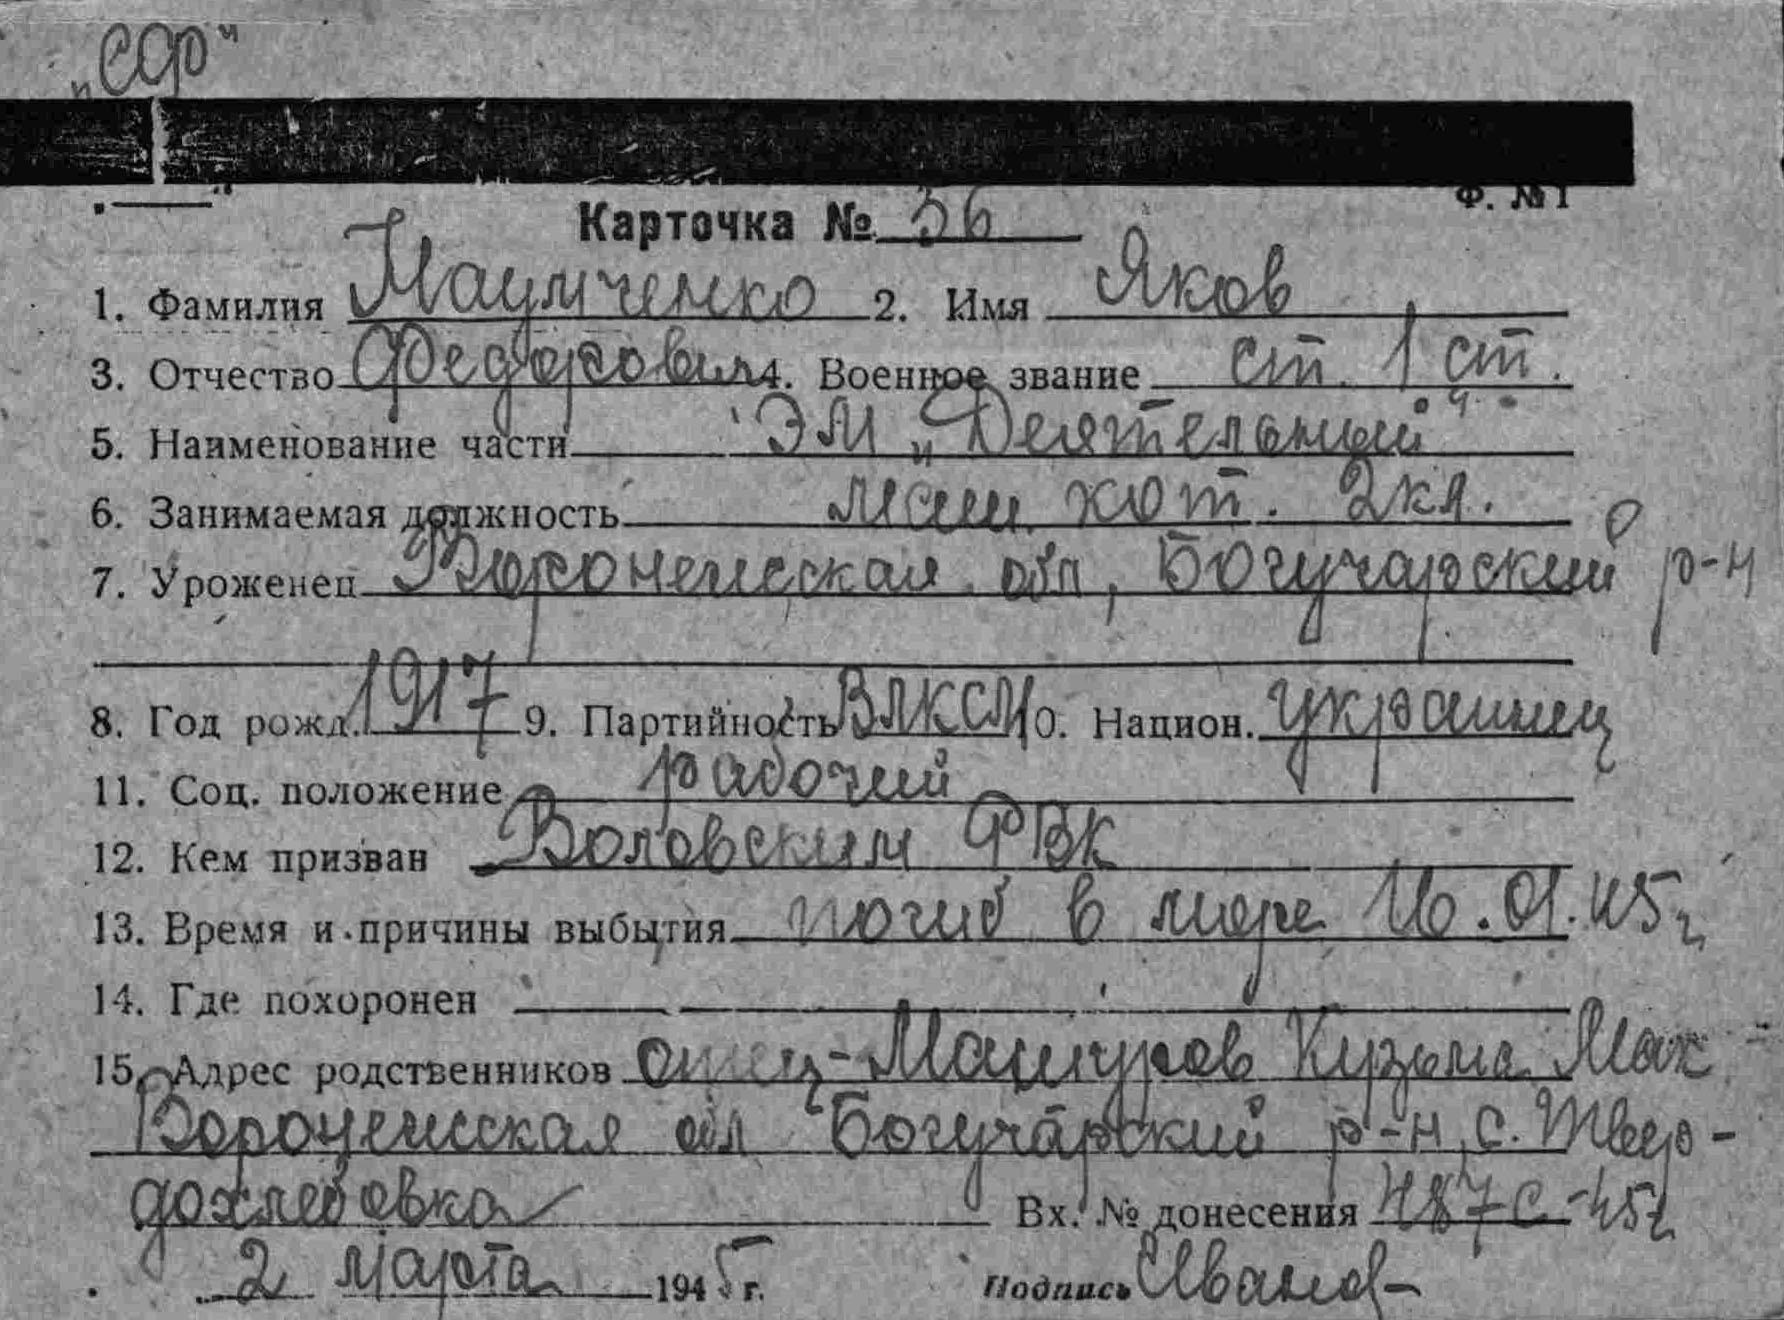 „СФ"
Ф. №1
Карточка № 36
1. Фамилия Наумченко 2. Имя Яков
3. Отчество Федорович 4. Военное звание ст. 1 ст.
5. Наименование части ЭМ „Деятельный"
6. Занимаемая должность маш. кот. 2кл.
7. Уроженец Воронежская обл, Богучарский р-н
8. Год рожд. 1917 9. Партийность ВЛКСМ 10. Национ. украинец
11. Соц. положение рабочий
12. Кем призван РВК
13. Время и причины выбытия погиб в море 16.01.45г
14. Где похоронен
15. Адрес родственников отец- Кузьма Мак
Воронежская обл Богучарский р-н, с. Твер-
дохлебовка Вх. № донесения 487с-45г
2 марта 1945 г. Подпись Иванов